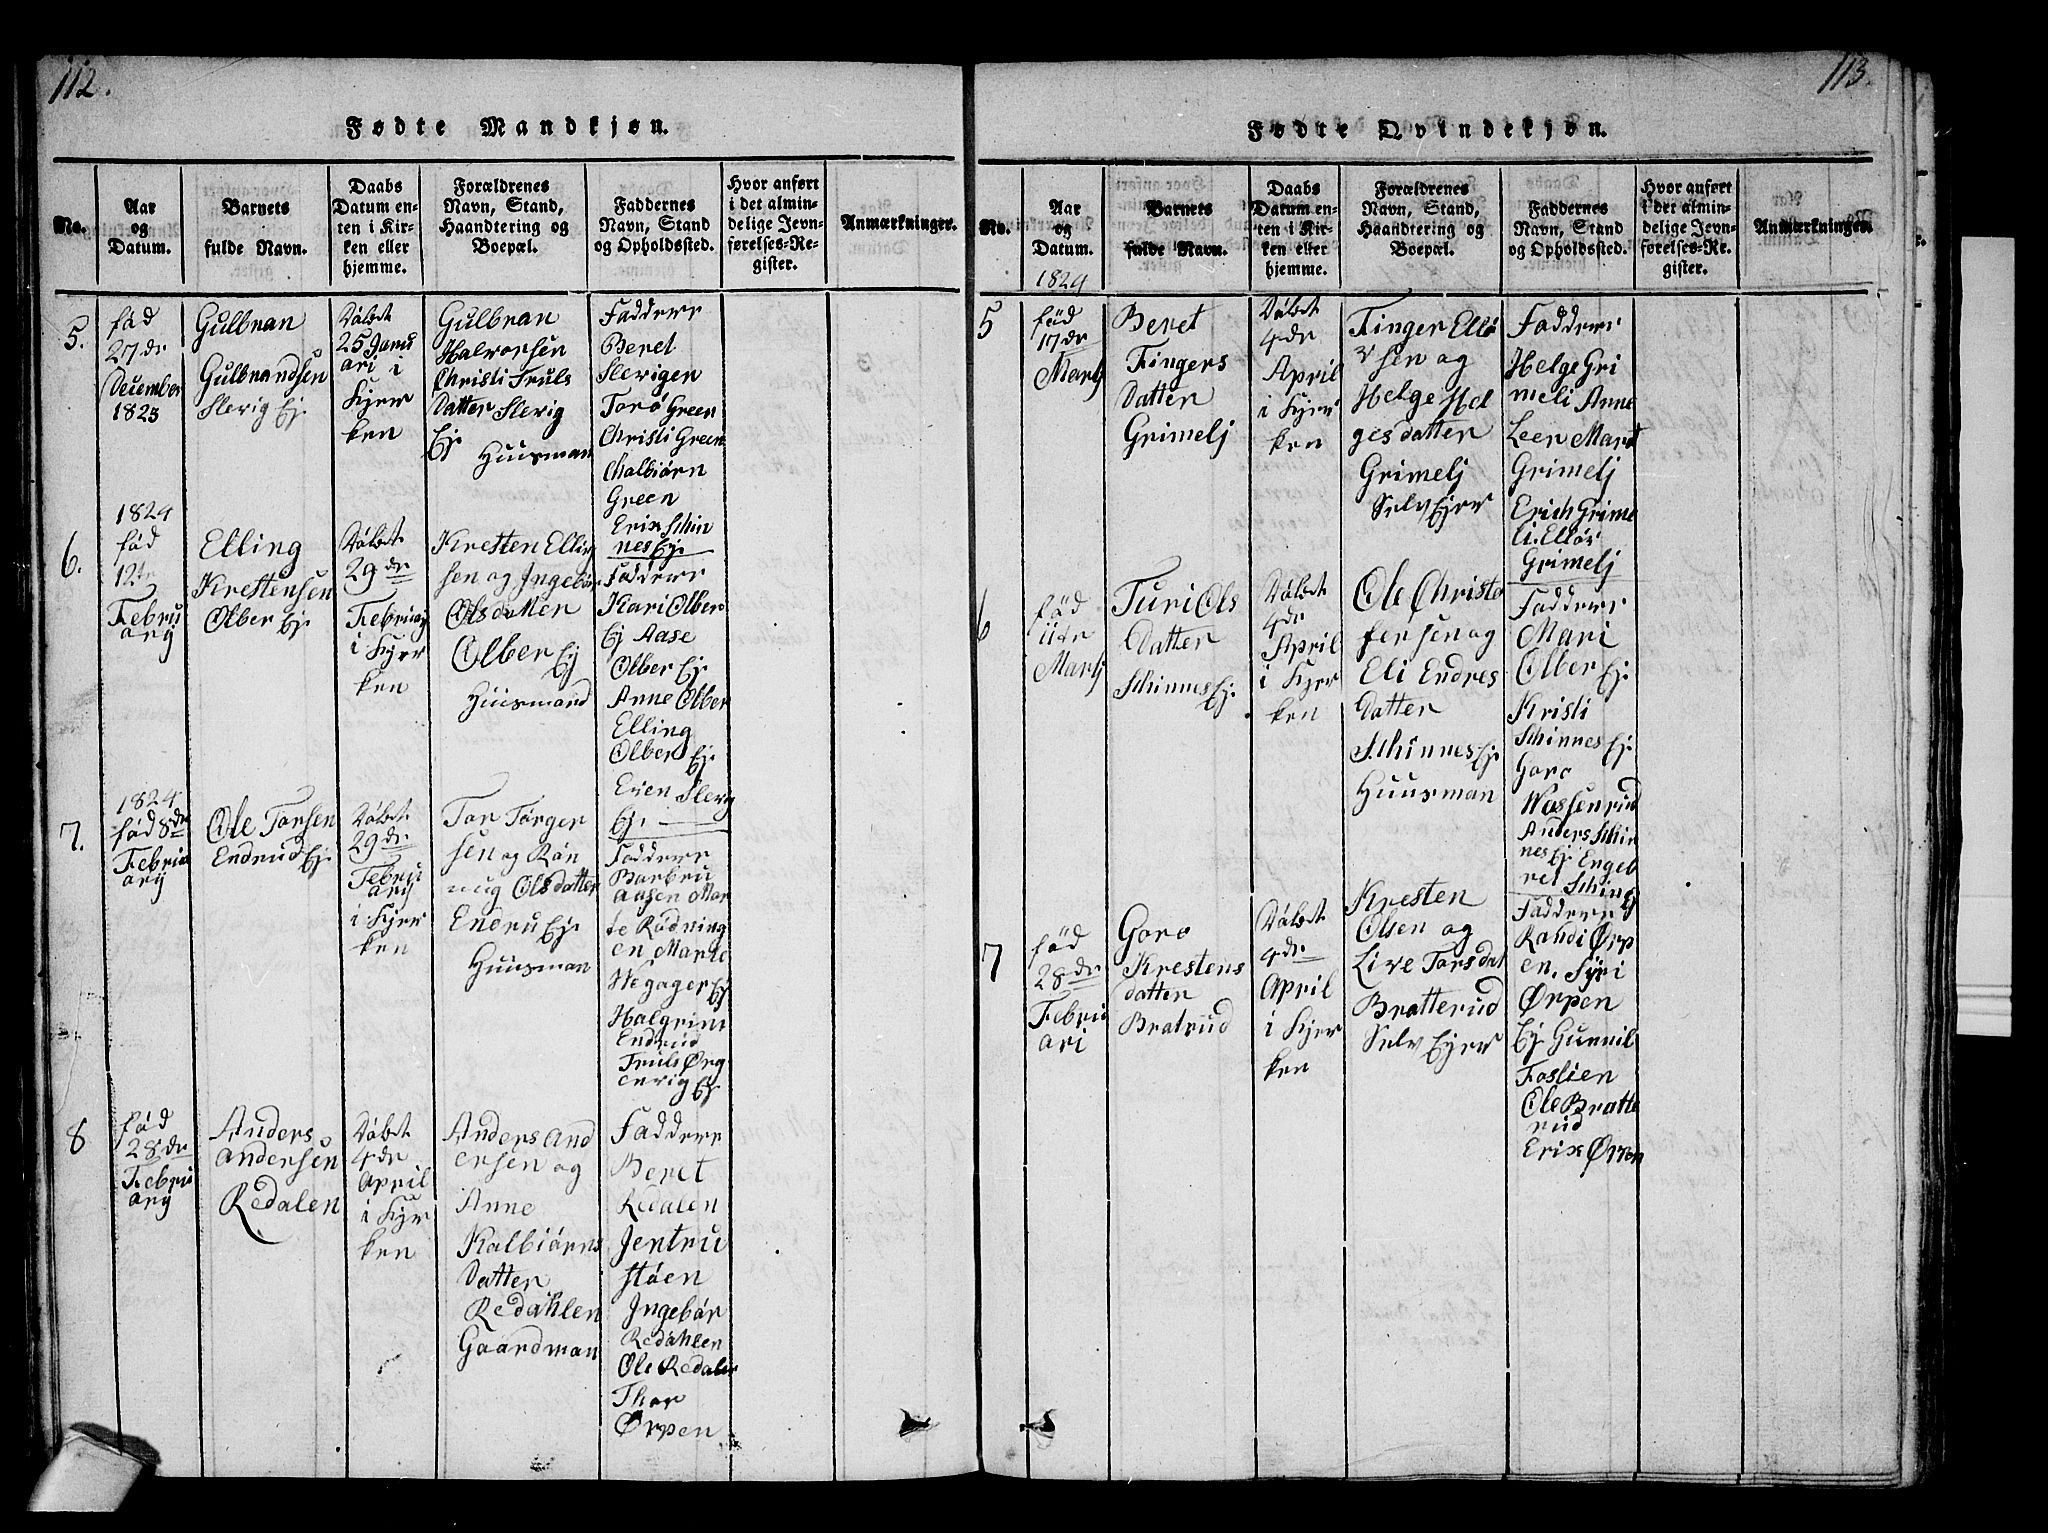 112.
Fødte Mandkjøn.
No.
Aar
og
Datum.
Barnets
fulde Navn.
Daabs
Datum en-
ten i Kir-
ken eller
hjemme.
Forældrenes
Navn, Stand,
Haandtering og
Boepæl.
Faddernes
Navn, Stand
og Opholdssted.
Hvor anført
i det almin-
delige Jevn-
førelses-Re-
gister.
Anmærkninger.
5.
fød
27de
December
1823
Gulbran
Gulbrandsen
Slevig Ej.
Døbt
25 Janu
ari i
Kjer
ken
Gulbran
Halvorsen
Christi Truls
Datter Slevig
Ej.
Huusman
Faddere
Beret
Slevigen
Torø Green
Christi Green
Calbiørn
Green
Erik Schin
nes Ej.
6.
1824
fød
12te
Febru
ary
Elling
Krestensen
Olber Ej.
Døbt
29de
Februay
i Kjer
ken
Kresten Elling
sen og Ingebør
Olsdatter
Olber Ej
Huusmand
Faddere
Kari Olber
Ej Aase
Olber Ej.
Anne Olber
Elling
Olber Ej.
Even Slevg
Ej.
7.
1824
fød 8de
Febru
ary
Ole Torsen
Endrud Ej.
Døbt
29de
Febru
ary
i Kjer
ken
Tor Torger
sen og Røn
nug Olsdatter
Endru Ej.
Huusman
Faddere
Barbru
Aasen Mar
te Rødning
en Marte
Wegager Ej
Halgrim
Endrud
Truls Ørg
envig Ej.
8
fød
28de
Febru
ary
Anders
Andersen
Redalen
Døbt
4de
April
i Kjer
ken
Anders And
ersen og
Anne
Kalbiørns
Datter
Redahlen
Gaardman
Faddere
Beret
Redalen
Jentru
støen
Ingebør
Redahlen
Ole Redalen
Thor
Ørpen
113.
Fødte Qvindekjøn.
No.
Aar
og
Datum.
1824
Barnets
fulde Navn.
Daabs
Datum en-
ten i Kir-
ken eller
hjemme.
Forældrenes
Navn, Stand,
Haandtering og
Boepæl.
Faddernes
Navn, Stand
og Opholdssted.
Hvor anført
i det almin-
delige Jevn-
førelses-Re-
gister.
Anmærkninger.
5
fød
17de
Martj
Beret
Fingers
Datter
Grimelj
Døbt
4de
April
i Kjer
ken
Finger Ellø
vsen og
Helge Hel
gesdatter
Grimelj
Selv Ejer
Faddere
Helge Gri
meli Anne
Leer Marit
Grimelj
Erich Grime
li. Elløv
Grimelj
6
fød
11te
Martj
Turi Ols
Datter
Schinnes Ej.
Døbt
4de
April
i Kjer
ken
Ole Christo
fersen og
Eli Endres
Datter
Schinnes Ej.
Huusman
Faddere
Mari
Olber Ej.
Kristi
Schinnes Ej.
Goro
Wassenrud
Anders Schin
nes Ej Engeb
ret Schin Ej
7
fød
28de
Febru
ari
Goro
Krestens
datter
Bratrud
Døbt
4de
April
i Kjer
ken
Kresten
Olsen og
Live Torsdat
Bratterud
Selv Ejer
Faddere
Randi Ørp
en. Syri
Ørpen
Ej Gunvil
Foslien
Ole Bratte
rud
Erik Ørpen